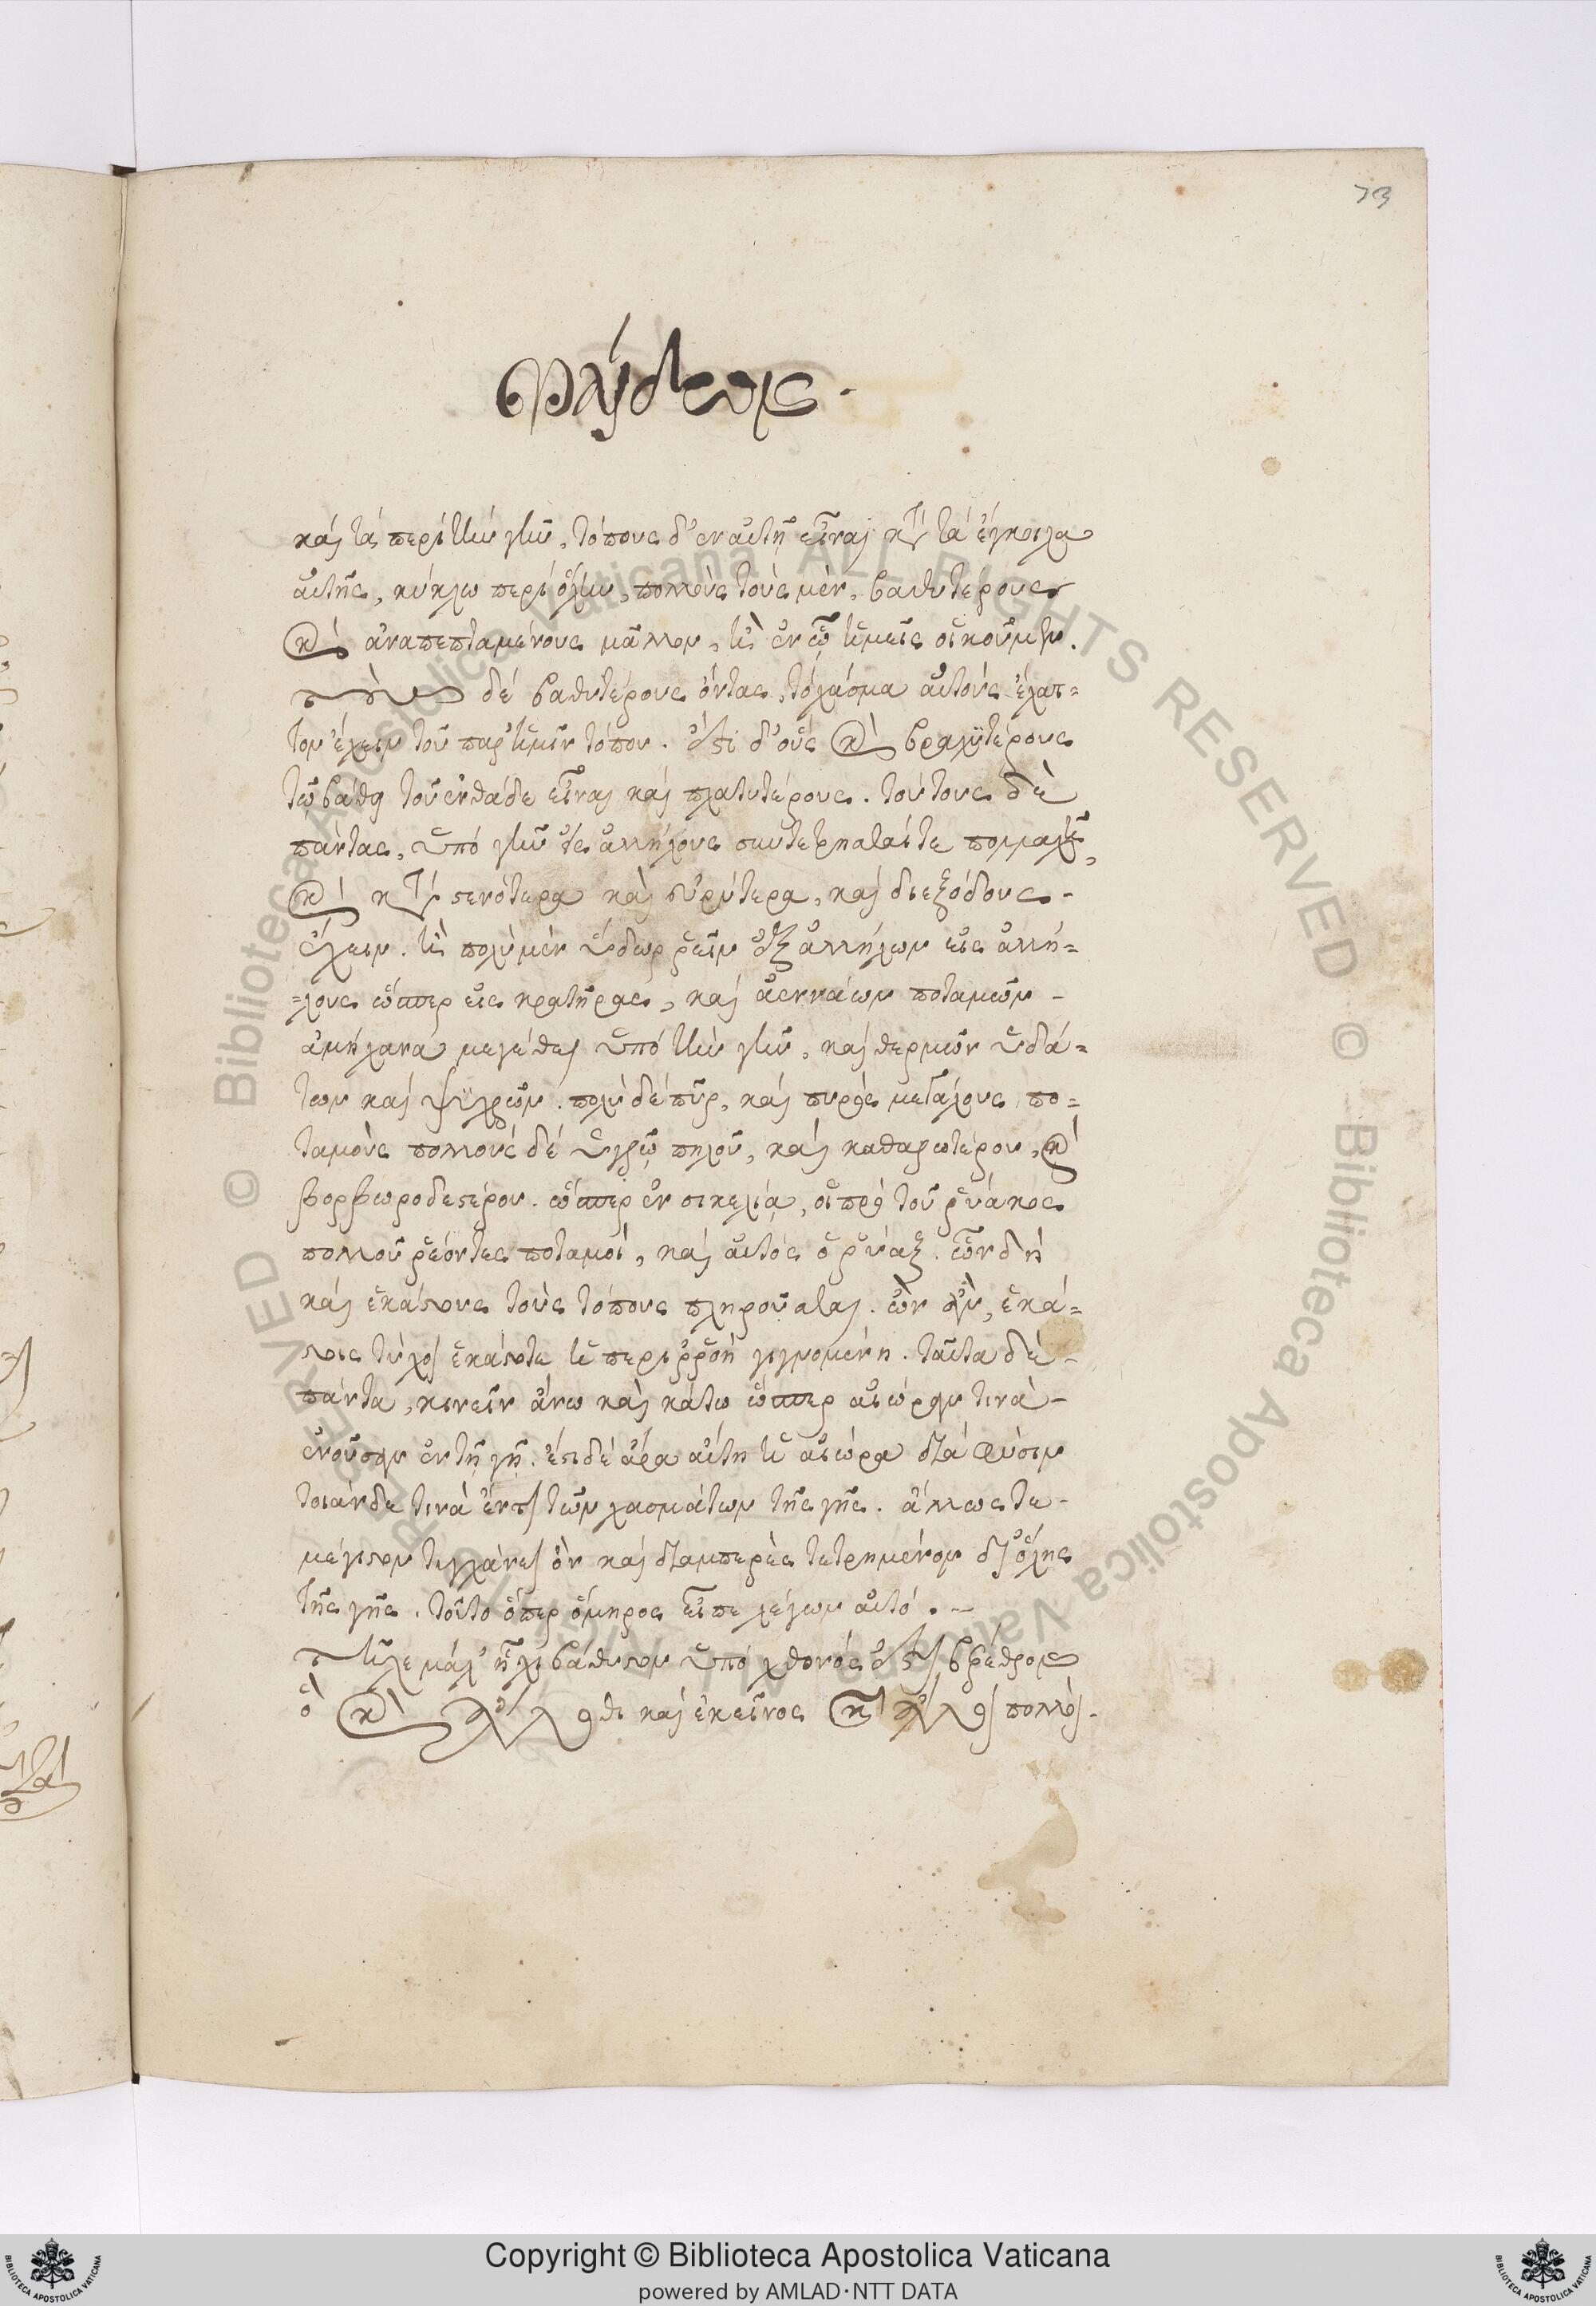 73
Φαίδωνος.
καὶ τὰ περὶ τὴν γῆν, τόπους δ' ἐν αὐτῇ εἶναι κατὰ τὰ ἔγκοιλα
αὐτῆς, κύκλω περὶ ὅλην, πολλοὺς τοὺς μὲν, βαθυτέρους
καὶ ἀναπεπταμένους μᾶλλον, ἢ ἐν ᾧ ἡμεῖς οἰκοῦμεν.
τοὺς δὲ βαθυτέρους ὄντας, τὸ χάσμα αὐτοὺς ἔλατ=
τον ἔχειν τοῦ παρ' ἡμῖν τόπου. ἔστι δ' οὓς καὶ βραχυτέρους
τῶ βάθει τοῦ ἐνθάδε εἶναι καὶ πλατυτέρους. τούτους δὲ
πάντας, ὑπὸ γῆν εἰς ἀλλήλους συντετρῆσθαί τε πολλαχῆ,
καὶ κατὰ στενότερα καὶ εὐρύτερα, καὶ διεξόδους -
ἔχειν. ἢ πολὺ μὲν ὕδωρ ῥεῖν ἐξ ἀλλήλων εἰς ἀλλή=
=λους ὥσπερ εἰς κρατῆρας, καὶ ἀεννάων ποταμῶν -
ἀμήχανα μεγέθει ὑπὸ τὴν γῆν, καὶ θερμῶν ὑδά=
των καὶ ψυχρῶν. πολὺ δὲ πῦρ, καὶ πυρὸς μεγάλους πο=
ταμοὺς πολλοὺς δὲ ὑγροῦ πηλοῦ, καὶ καθαρωτέρου, καὶ
βορβωροδεστέρου. ὥσπερ ἐν σικελία, οἱ πρὸ τοῦ ῥύακος
πολλοῦ ῥέοντες ποταμοὶ, καὶ αὐτὸς ὁ ῥύαξ. ὧν δὴ
καὶ ἑκάστους τοὺς τόπους πληροῦσθαι. ὧν ἂν, ἑκά=
στοις τύχοι ἑκάστοτε ἡ περιῤῥοὴ γιγνομένη. ταῦτα δὲ -
πάντα, κινεῖν ἄνω καὶ κάτω ὥσπερ αἰώραν τινὰ -
ἐνοῦσαν ἐν τῇ γῇ. ἔστι δὲ ἄρα αὕτη ἡ αἰώρα διὰ φύσιν
τοιάνδε τινὰ ἕν τι τῶν χασμάτων τῆς γῆς. ἄλλως τε -
μέγιστον τυγχάνει ὂν καὶ διαμπερὲς τετρημένον δι' ὅλης
τῆς γῆς. τοῦτο ὅπερ ὅμηρος εἶπε λέγων αὐτό. -
τῆλε μάλ' ἧχι βάθιστον ὑπὸ χθονός ἐστι βέρεθρον
ὃ καὶ ἄλλοθι καὶ ἐκεῖνος καὶ ἄλλοι πολλοὶ.